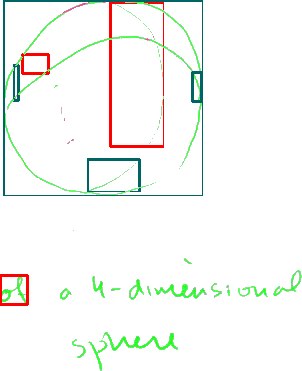 of a 4-dimensional
sphere